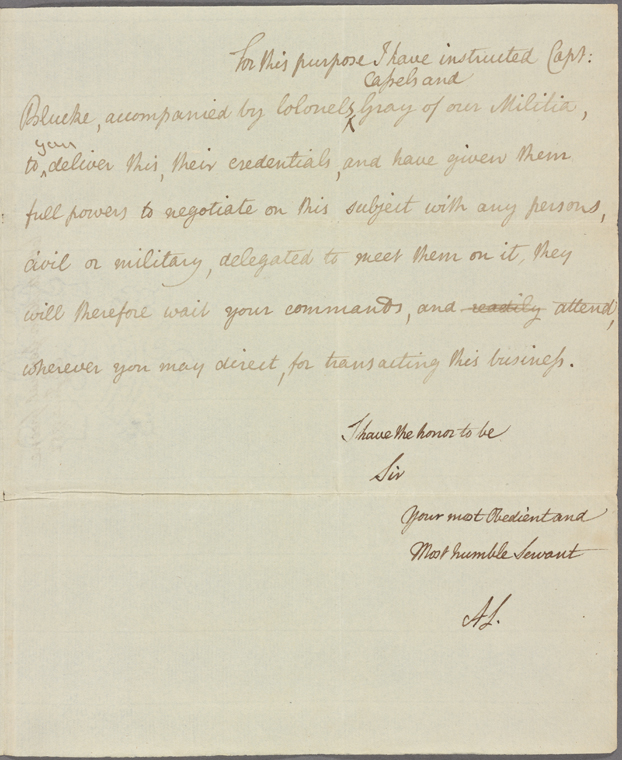 For this purpose I have instructed Capt:
Capels and
Blucke, accompanied by Colonels Gray of our Militia,
your
to deliver this, their credentials, and have given them
full powers to negotiate on this subject with any persons,
civil or military, delegated to meet them on it, they
will therefore wait your commands, and readily attend,
wherever you may direct, for transacting this business.
I have the honor to be
Sir
Your most Obedient and
Most humble Servant